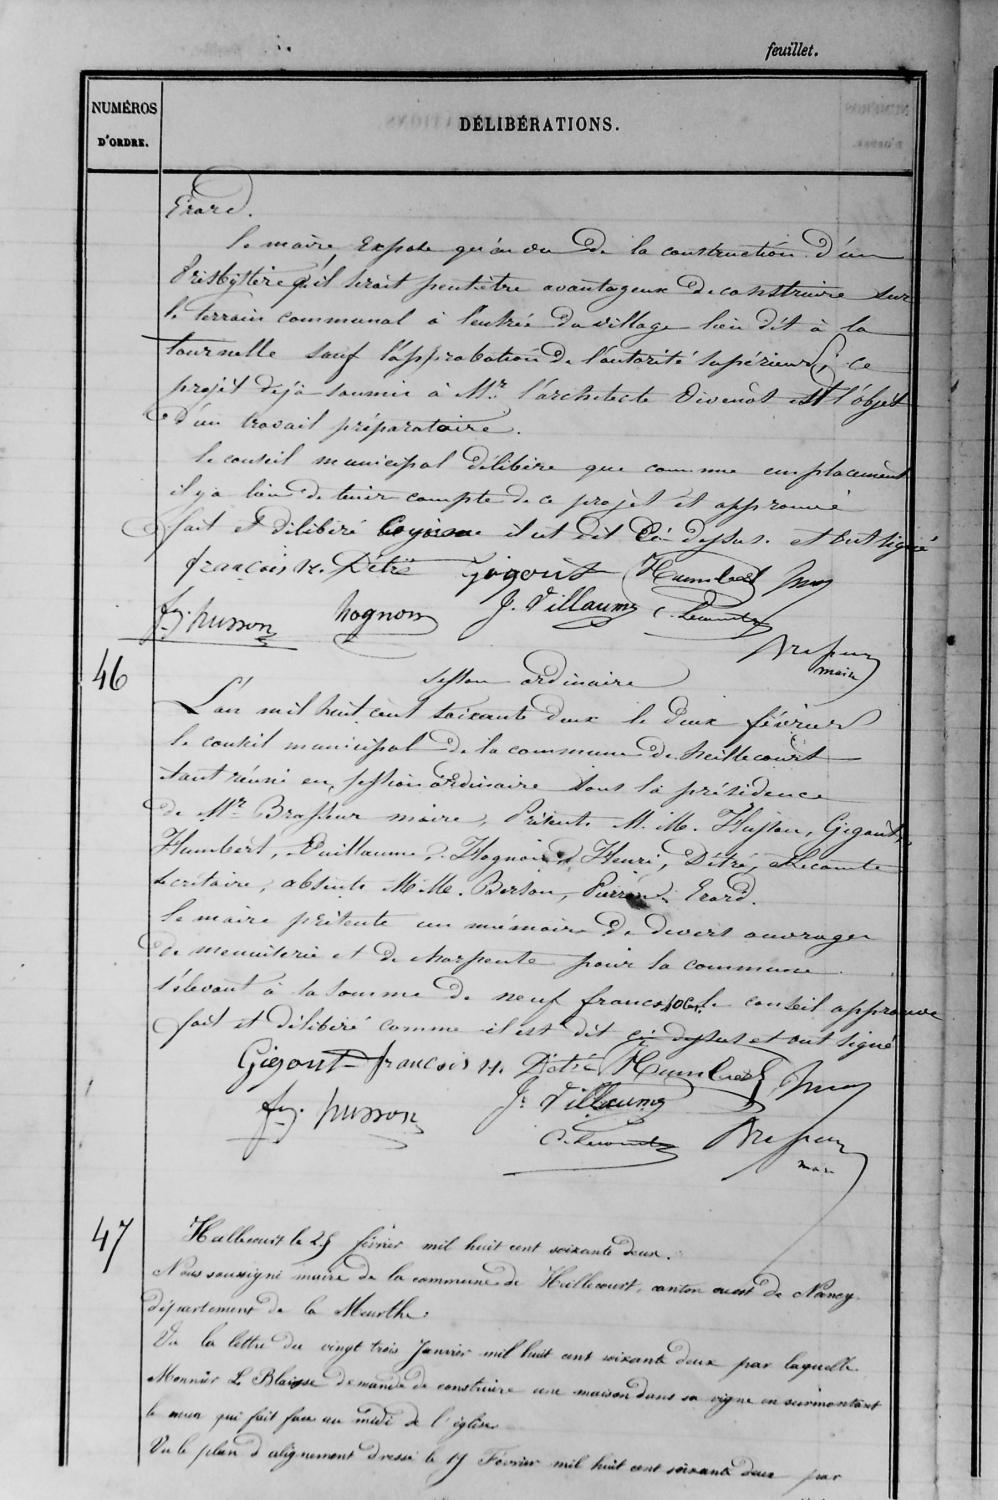 feuillet.
NUMÉROS
D'ORDRE.
DÉLIBÉRATIONS.
Erard.
Le maire expose qu'en vu de la construction d'un
Presbytère qu'il serait peut être avantageux de construire sur
le terrain communal à l'entrée du village lieu dit à la
tournelle sauf l'approbation de l'autorité supérieure, ce
projet déjà soumis à Mr. l'architecte Divenot est l'objet
d'un travail préparatoire.
le conseil municipal délibère que comme emplacement
il y a lieu de tenir compte de ce projet et approuvé
fait et délibéré comme il est dit ci dessus. et ont signé
françois H. Détré Gigout Humbert
fçs. husson hognon J. Villaume C. Lecomte
maire
46
session ordinaire
L'an mil huit cent soixante deux le deux février
le conseil municipal de la commune de heillecourt
étant réuni en session ordinaire sous la présidence
de Mr. Brasseur maire, Présents M.M. Husson, Gigout,
Humbert, Vuillaume, Hognon, Henri, Détré, Lecomte
secrétaire, absents M.M. Berson, Pierron, Erard.
le maire présente un mémoire de divers ouvrages
de menuiserie et de charpente pour la commune
s'élevant à la somme de neuf francs le conseil approuve
fait et délibéré comme il est dit ci dessus et ont signé
Gigout françois H. Détré Humbert
fçs. husson J. Villaume
C. Lecomte
maire
47
Heillecourt le 25 février mil huit cent soixante deux.
Nous soussigné maire de la commune de Heillecourt, canton ouest de Nancy
département de la Meurthe.
Vu la lettre du vingt trois Janvier mil huit cent soixante deux par laquelle
Monsieur L. Blaisse demande de construire une maison dans sa vigne en surmontant
le mur qui fait face au midi de l'église.
Vu le plan d'alignement dressé le 19 Février mil huit cent soixante deux par